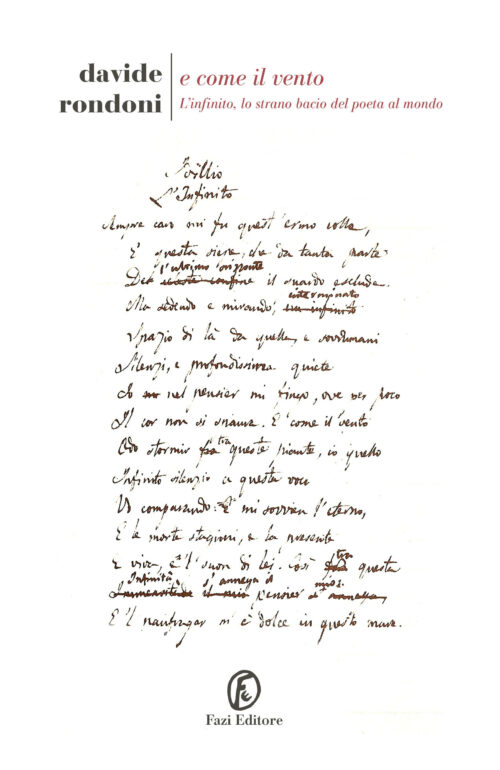 davide
rondoni
e come il vento
L'infinito, lo strano bacio del poeta al mondo
Idillio
L'Infinito
Sempre caro mi fu quest'ermo colle,
E questa siepe, che da tanta parte
l'ultimo orizzonte
Del celeste confine il guardo esclude.
interminato
Ma sedendo e mirando, un infinito
Spazio di là da quella, e sovrumani
Silenzi, e profondissima quiete
Io nel pensier mi fingo, ove per poco
Il cor non si spaura. E come il vento
tra
Odo stormir fra queste piante, io quello
Infinito silenzio a questa voce
Vo comparando. E mi sovvien l'eterno,
E le morte stagioni, e la presente
tra
E viva, e 'l suon di lei. Così fra questa
Infinità s'annega il mio:
Immensitade il mio pensier s'annega,
E 'l naufragar m'è dolce in questo mare.
Fe
Fazi Editore